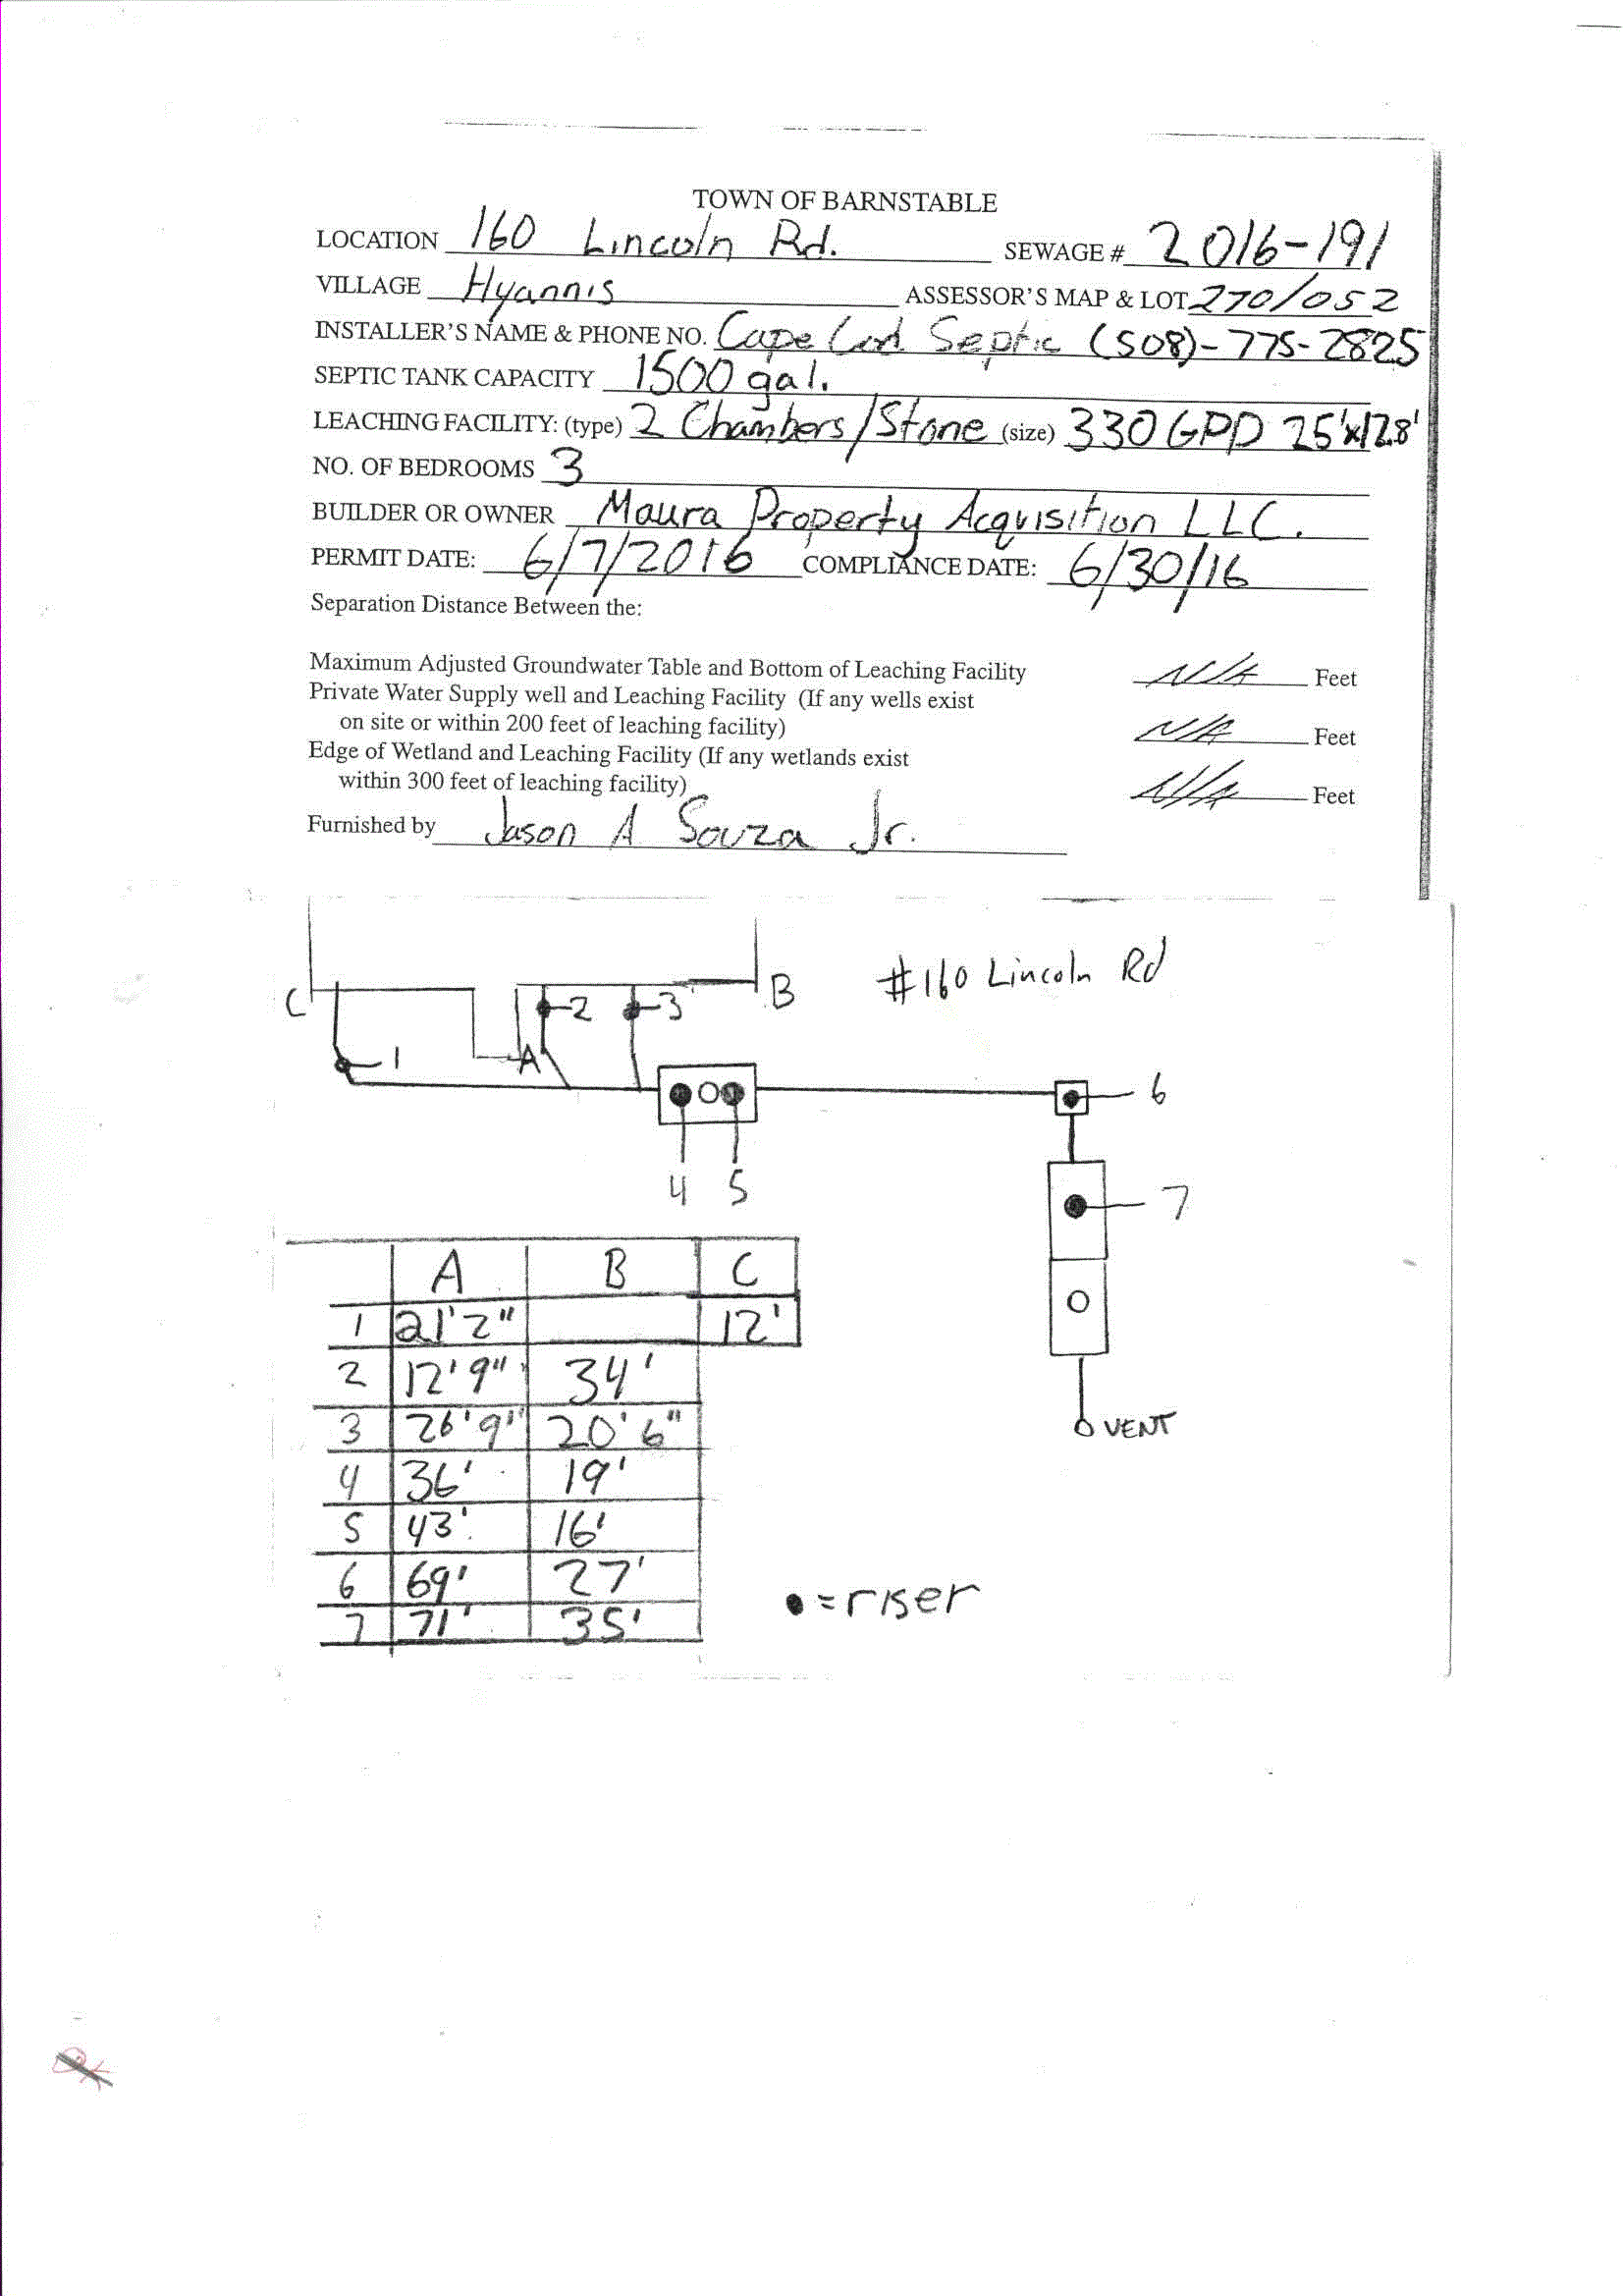 TOWN OF BARNSTABLE
LOCATION 160 Lincoln Rd. SEWAGE # 2016-191
VILLAGE Hyannis ASSESSOR'S MAP & LOT 270/052
INSTALLER'S NAME & PHONE NO. Cape Cod Septic (508)-775-2825
SEPTIC TANK CAPACITY 1500 gal.
LEACHING FACILITY: (type) 2 Chambers/Stone (size) 330 GPD 25'x12.8'
NO. OF BEDROOMS 3
BUILDER OR OWNER Maura Property Acquisition LLC.
PERMIT DATE: 6/7/2016 COMPLIANCE DATE: 6/30/16
Separation Distance Between the:
Maximum Adjusted Groundwater Table and Bottom of Leaching Facility N/A Feet
Private Water Supply well and Leaching Facility (If any wells exist
on site or within 200 feet of leaching facility) N/A Feet
Edge of Wetland and Leaching Facility (If any wetlands exist
within 300 feet of leaching facility) N/A Feet
Furnished by Jason A Souza Jr.
#160 Lincoln Rd
C B
2 3
1 A
6
4 5
7
VENT
A B C
1 21'2" 12'
2 12'9" 34'
3 26'9" 20'6"
4 36' 19'
5 43' 16'
6 69' 27'
7 71' 35'
• = riser